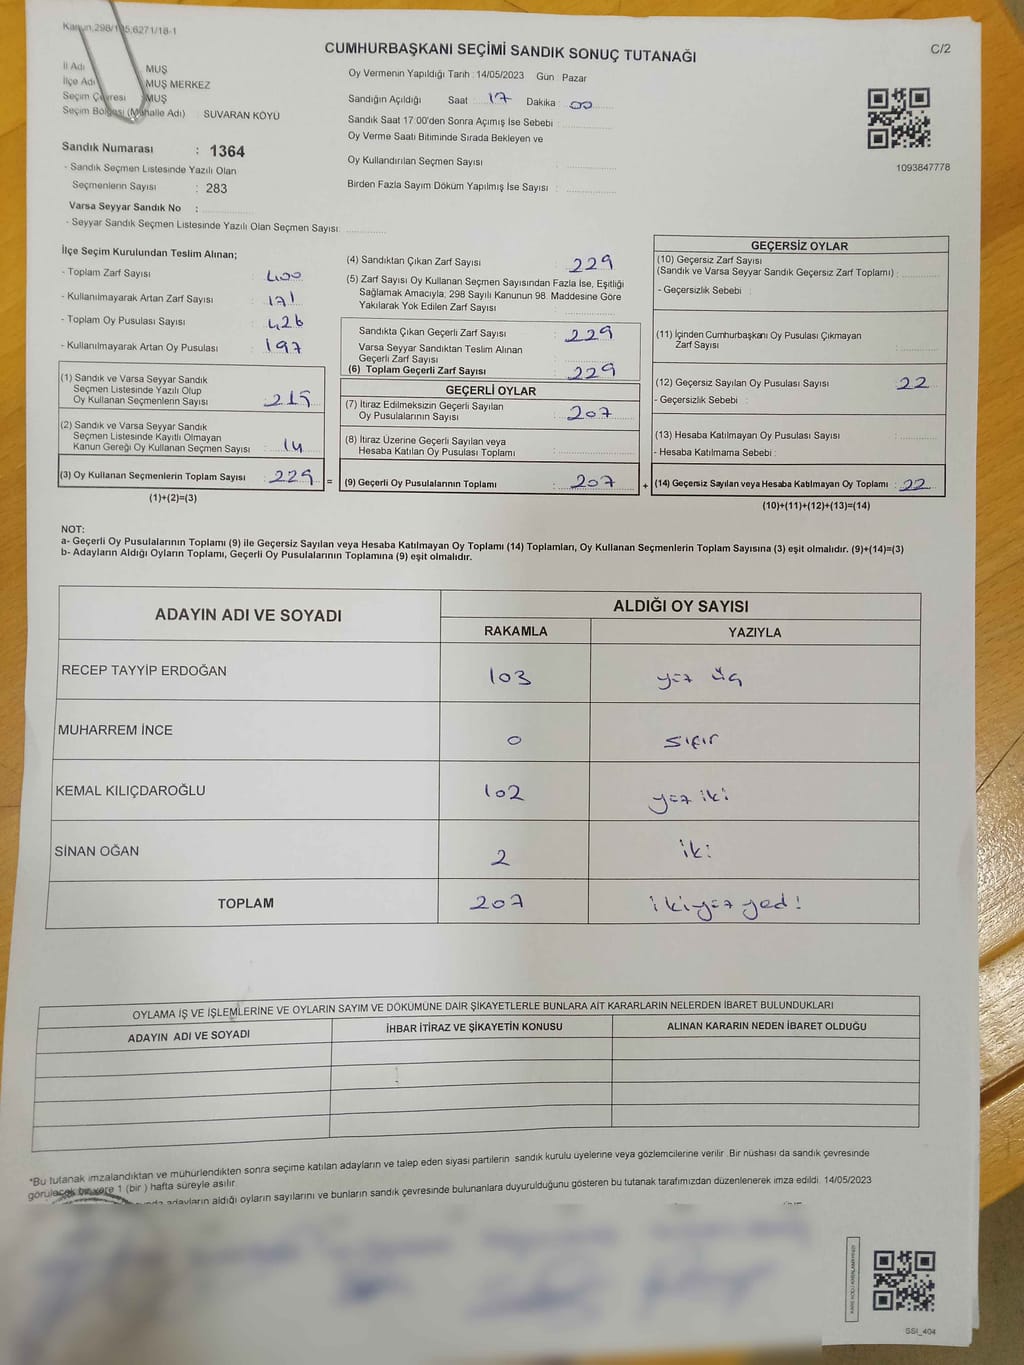 Kanun,298/105,6271/18-1
CUMHURBAŞKANI SEÇİMİ SANDIK SONUÇ TUTANAĞI
C/2
İl Adı MUŞ
İlçe Adı MUŞ MERKEZ
Seçim Çevresi MUŞ
Seçim Bölgesi (Mahalle Adı) SUVARAN KÖYÜ
Sandık Numarası : 1364
- Sandık Seçmen Listesinde Yazılı Olan
Seçmenlerin Sayısı : 283
Varsa Seyyar Sandık No :
- Seyyar Sandık Seçmen Listesinde Yazılı Olan Seçmen Sayısı
Oy Vermenin Yapıldığı Tarih : 14/05/2023 Gün : Pazar
Sandığın Açıldığı Saat : 17 Dakika : 00
Sandık Saat 17:00'den Sonra Açımış İse Sebebi
Oy Verme Saati Bitiminde Sırada Bekleyen ve
Oy Kullandırılan Seçmen Sayısı :
Birden Fazla Sayım Döküm Yapılmış İse Sayısı :
1093847778
İlçe Seçim Kurulundan Teslim Alınan;
- Toplam Zarf Sayısı : 400
- Kullanılmayarak Artan Zarf Sayısı : 171
- Toplam Oy Pusulası Sayısı : 426
- Kullanılmayarak Artan Oy Pusulası : 197
(1) Sandık ve Varsa Seyyar Sandık
Seçmen Listesinde Yazılı Olup
Oy Kullanan Seçmenlerin Sayısı : 215
(2) Sandık ve Varsa Seyyar Sandık
Seçmen Listesinde Kayıtlı Olmayan
Kanun Gereği Oy Kullanan Seçmen Sayısı : 14
(3) Oy Kullanan Seçmenlerin Toplam Sayısı : 229 =
(1)+(2)=(3)
(4) Sandıktan Çıkan Zarf Sayısı : 229
(5) Zarf Sayısı Oy Kullanan Seçmen Sayısından Fazla İse, Eşitliği
Sağlamak Amacıyla, 298 Sayılı Kanunun 98. Maddesine Göre
Yakılarak Yok Edilen Zarf Sayısı :
Sandıkta Çıkan Geçerli Zarf Sayısı : 229
Varsa Seyyar Sandıktan Teslim Alınan
Geçerli Zarf Sayısı :
(6) Toplam Geçerli Zarf Sayısı : 229
GEÇERLİ OYLAR
(7) İtiraz Edilmeksizin Geçerli Sayılan
Oy Pusulalarının Sayısı : 207
(8) İtiraz Üzerine Geçerli Sayılan veya
Hesaba Katılan Oy Pusulası Toplamı :
(9) Geçerli Oy Pusulalarının Toplamı : 207 +
GEÇERSİZ OYLAR
(10) Geçersiz Zarf Sayısı
(Sandık ve Varsa Seyyar Sandık Geçersiz Zarf Toplamı) :
- Geçersizlik Sebebi :
(11) İçinden Cumhurbaşkanı Oy Pusulası Çıkmayan
Zarf Sayısı :
(12) Geçersiz Sayılan Oy Pusulası Sayısı : 22
- Geçersizlik Sebebi :
(13) Hesaba Katılmayan Oy Pusulası Sayısı :
- Hesaba Katılmama Sebebi :
(14) Geçersiz Sayılan veya Hesaba Katılmayan Oy Toplamı : 22
(10)+(11)+(12)+(13)=(14)
NOT:
a- Geçerli Oy Pusulalarının Toplamı (9) ile Geçersiz Sayılan veya Hesaba Katılmayan Oy Toplamı (14) Toplamları, Oy Kullanan Seçmenlerin Toplam Sayısına (3) eşit olmalıdır. (9)+(14)=(3)
b- Adayların Aldığı Oyların Toplamı, Geçerli Oy Pusulalarının Toplamına (9) eşit olmalıdır.
ADAYIN ADI VE SOYADI ALDIĞI OY SAYISI
RAKAMLA YAZIYLA
RECEP TAYYİP ERDOĞAN 103 yüz üç
MUHARREM İNCE 0 sıfır
KEMAL KILIÇDAROĞLU 102 yüz iki
SİNAN OĞAN 2 iki
TOPLAM 207 ikiyüz yedi
OYLAMA İŞ VE İŞLEMLERİNE VE OYLARIN SAYIM VE DÖKÜMÜNE DAİR ŞİKAYETLERLE BUNLARA AİT KARARLARIN NELERDEN İBARET BULUNDUKLARI
ADAYIN ADI VE SOYADI İHBAR İTİRAZ VE ŞİKAYETİN KONUSU ALINAN KARARIN NEDEN İBARET OLDUĞU
*Bu tutanak imzalandıktan ve mühürlendikten sonra seçime katılan adayların ve talep eden siyasi partilerin sandık kurulu üyelerine veya gözlemcilerine verilir. Bir nüshası da sandık çevresinde
görülecek bir yere 1 (bir ) hafta süreyle asılır.
adayların aldığı oyların sayılarını ve bunların sandık çevresinde bulunanlara duyurulduğunu gösteren bu tutanak tarafımızdan düzenlenerek imza edildi. 14/05/2023
SSI_404